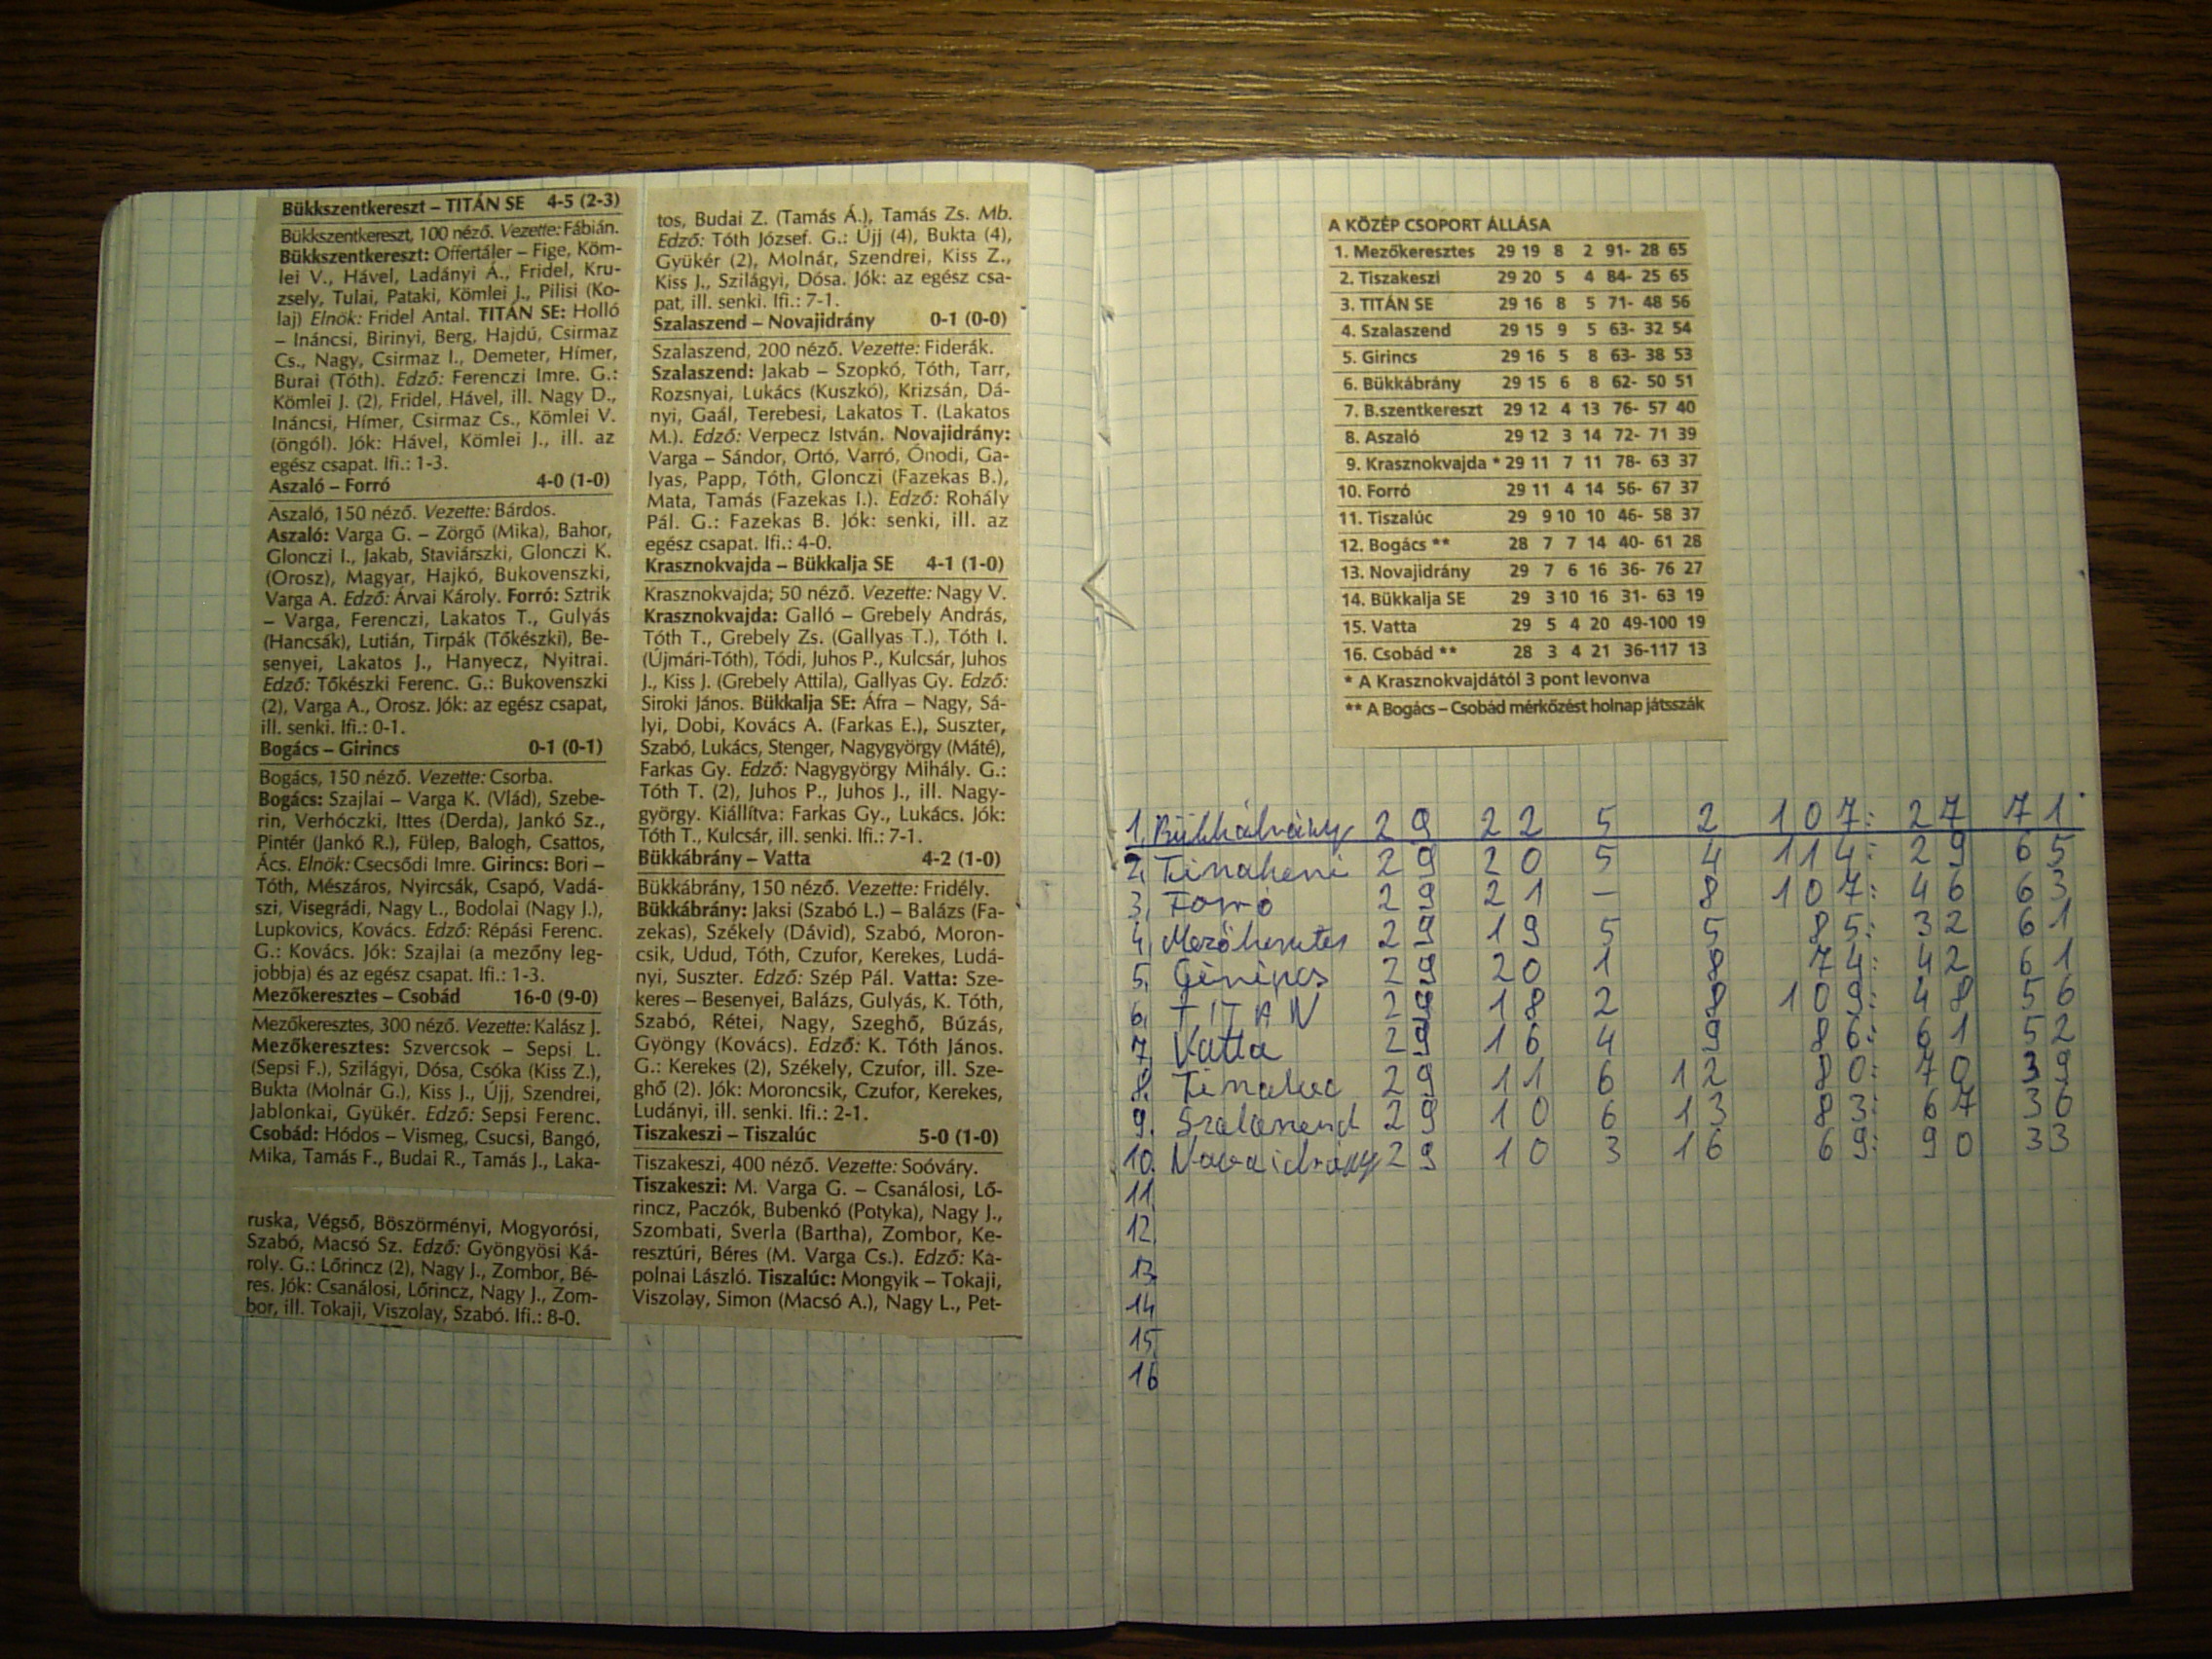 Bükkszentkereszt – TITÁN SE 4-5 (2-3)
Bükkszentkereszt, 100 néző. Vezette: Fábián.
Bükkszentkereszt: Offertáler – Fige, Köm-
lei V., Hável, Ladányi Á., Fridel, Kru-
zsely, Tulai, Pataki, Kömlei J., Pilisi (Ko-
laj) Elnök: Fridel Antal. TITÁN SE: Holló
– Ináncsi, Birinyi, Berg, Hajdú, Csirmaz
Cs., Nagy, Csirmaz I., Demeter, Hímer,
Burai (Tóth). Edző: Ferenczi Imre. G.:
Kömlei J. (2), Fridel, Hável, ill. Nagy D.,
Ináncsi, Hímer, Csirmaz Cs., Kömlei V.
(öngól). Jók: Hável, Kömlei J., ill. az
egész csapat. Ifi.: 1-3.
Aszaló – Forró 4-0 (1-0)
Aszaló, 150 néző. Vezette: Bárdos.
Aszaló: Varga G. – Zörgő (Mika), Bahor,
Glonczi I., Jakab, Staviárszki, Glonczi K.
(Orosz), Magyar, Hajkó, Bukovenszki,
Varga A. Edző: Árvai Károly. Forró: Sztrik
– Varga, Ferenczi, Lakatos T., Gulyás
(Hancsák), Lutián, Tirpák (Tőkészki), Be-
senyei, Lakatos J., Hanyecz, Nyitrai.
Edző: Tőkészki Ferenc. G.: Bukovenszki
(2), Varga A., Orosz. Jók: az egész csapat,
ill. senki. Ifi.: 0-1.
Bogács – Girincs 0-1 (0-1)
Bogács, 150 néző. Vezette: Csorba.
Bogács: Szajlai – Varga K. (Vlád), Szebe-
rin, Verhóczki, Ittes (Derda), Jankó Sz.,
Pintér (Jankó R.), Fülep, Balogh, Csattos,
Ács. Elnök: Csecsődi Imre. Girincs: Bori –
Tóth, Mészáros, Nyircsák, Csapó, Vadá-
szi, Visegrádi, Nagy L., Bodolai (Nagy J.),
Lupkovics, Kovács. Edző: Répási Ferenc.
G.: Kovács. Jók: Szajlai (a mezőny leg-
jobbja) és az egész csapat. Ifi.: 1-3.
Mezőkeresztes – Csobád 16-0 (9-0)
Mezőkeresztes, 300 néző. Vezette: Kalász J.
Mezőkeresztes: Szvercsok – Sepsi L.
(Sepsi F.), Szilágyi, Dósa, Csóka (Kiss Z.),
Bukta (Molnár G.), Kiss J., Újj, Szendrei,
Jablonkai, Gyükér. Edző: Sepsi Ferenc.
Csobád: Hódos – Vismeg, Csucsi, Bangó,
Mika, Tamás F., Budai R., Tamás J., Laka-
ruska, Végső, Böszörményi, Mogyorósi,
Szabó, Macsó Sz. Edző: Gyöngyösi Ká-
roly. G.: Lőrincz (2), Nagy J., Zombor, Bé-
res. Jók: Csanálosi, Lőrincz, Nagy J., Zom-
bor, ill. Tokaji, Viszolay, Szabó. Ifi.: 8-0.
tos, Budai Z. (Tamás Á.), Tamás Zs. Mb.
Edző: Tóth József. G.: Újj (4), Bukta (4),
Gyükér (2), Molnár, Szendrei, Kiss Z.,
Kiss J., Szilágyi, Dósa. Jók: az egész csa-
pat, ill. senki. Ifi.: 7-1.
Szalaszend – Novajidrány 0-1 (0-0)
Szalaszend, 200 néző. Vezette: Fiderák.
Szalaszend: Jakab – Szopkó, Tóth, Tarr,
Rozsnyai, Lukács (Kuszkó), Krizsán, Dá-
nyi, Gaál, Terebesi, Lakatos T. (Lakatos
M.). Edző: Verpecz István. Novajidrány:
Varga – Sándor, Ortó, Varró, Ónodi, Ga-
lyas, Papp, Tóth, Glonczi (Fazekas B.),
Mata, Tamás (Fazekas I.). Edző: Rohály
Pál. G.: Fazekas B. Jók: senki, ill. az
egész csapat. Ifi.: 4-0.
Krasznokvajda – Bükkalja SE 4-1 (1-0)
Krasznokvajda; 50 néző. Vezette: Nagy V.
Krasznokvajda: Galló – Grebely András,
Tóth T., Grebely Zs. (Gallyas T.), Tóth I.
(Újmári-Tóth), Tódi, Juhos P., Kulcsár, Juhos
J., Kiss J. (Grebely Attila), Gallyas Gy. Edző:
Siroki János. Bükkalja SE: Áfra – Nagy, Sá-
lyi, Dobi, Kovács A. (Farkas E.), Suszter,
Szabó, Lukács, Stenger, Nagygyörgy (Máté),
Farkas Gy. Edző: Nagygyörgy Mihály. G.:
Tóth T. (2), Juhos P., Juhos J., ill. Nagy-
györgy. Kiállítva: Farkas Gy., Lukács. Jók:
Tóth T., Kulcsár, ill. senki. Ifi.: 7-1.
Bükkábrány – Vatta 4-2 (1-0)
Bükkábrány, 150 néző. Vezette: Fridély.
Bükkábrány: Jaksi (Szabó L.) – Balázs (Fa-
zekas), Székely (Dávid), Szabó, Moron-
csik, Udud, Tóth, Czufor, Kerekes, Ludá-
nyi, Suszter. Edző: Szép Pál. Vatta: Sze-
keres – Besenyei, Balázs, Gulyás, K. Tóth,
Szabó, Rétei, Nagy, Szeghő, Búzás,
Gyöngy (Kovács). Edző: K. Tóth János.
G.: Kerekes (2), Székely, Czufor, ill. Sze-
ghő (2). Jók: Moroncsik, Czufor, Kerekes,
Ludányi, ill. senki. Ifi.: 2-1.
Tiszakeszi – Tiszalúc 5-0 (1-0)
Tiszakeszi, 400 néző. Vezette: Soóváry.
Tiszakeszi: M. Varga G. – Csanálosi, Lő-
rincz, Paczók, Bubenkó (Potyka), Nagy J.,
Szombati, Sverla (Bartha), Zombor, Ke-
resztúri, Béres (M. Varga Cs.). Edző: Ká-
polnai László. Tiszalúc: Mongyik – Tokaji,
Viszolay, Simon (Macsó A.), Nagy L., Pet-
A KÖZÉP CSOPORT ÁLLÁSA
1. Mezőkeresztes 29 19 8 2 91- 28 65
2. Tiszakeszi 29 20 5 4 84- 25 65
3. TITÁN SE 29 16 8 5 71- 48 56
4. Szalaszend 29 15 9 5 63- 32 54
5. Girincs 29 16 5 8 63- 38 53
6. Bükkábrány 29 15 6 8 62- 50 51
7. B.szentkereszt 29 12 4 13 76- 57 40
8. Aszaló 29 12 3 14 72- 71 39
9. Krasznokvajda * 29 11 7 11 78- 63 37
10. Forró 29 11 4 14 56- 67 37
11. Tiszalúc 29 9 10 10 46- 58 37
12. Bogács ** 28 7 7 14 40- 61 28
13. Novajidrány 29 7 6 16 36- 76 27
14. Bükkalja SE 29 3 10 16 31- 63 19
15. Vatta 29 5 4 20 49-100 19
16. Csobád ** 28 3 4 21 36-117 13
* A Krasznokvajdától 3 pont levonva
** A Bogács – Csobád mérkőzést holnap játsszák
1. Bükkábrány 29 22 5 2 107: 27 71
2. Tiszakeszi 29 20 5 4 114: 29 65
3. Forró 29 21 – 8 107: 46 63
4. Mezőkeresztes 29 19 5 5 85: 32 61
5. Girincs 29 20 1 8 74: 42 61
6. TITÁN 29 18 2 8 109: 48 56
7. Vatta 29 16 4 9 86: 61 52
8. Tiszaluc 29 11 6 12 80: 70 39
9. Szalaszend 29 10 6 13 83: 67 36
10. Novajidrány 29 10 3 16 69: 90 33
11.
12.
13.
14
15.
16